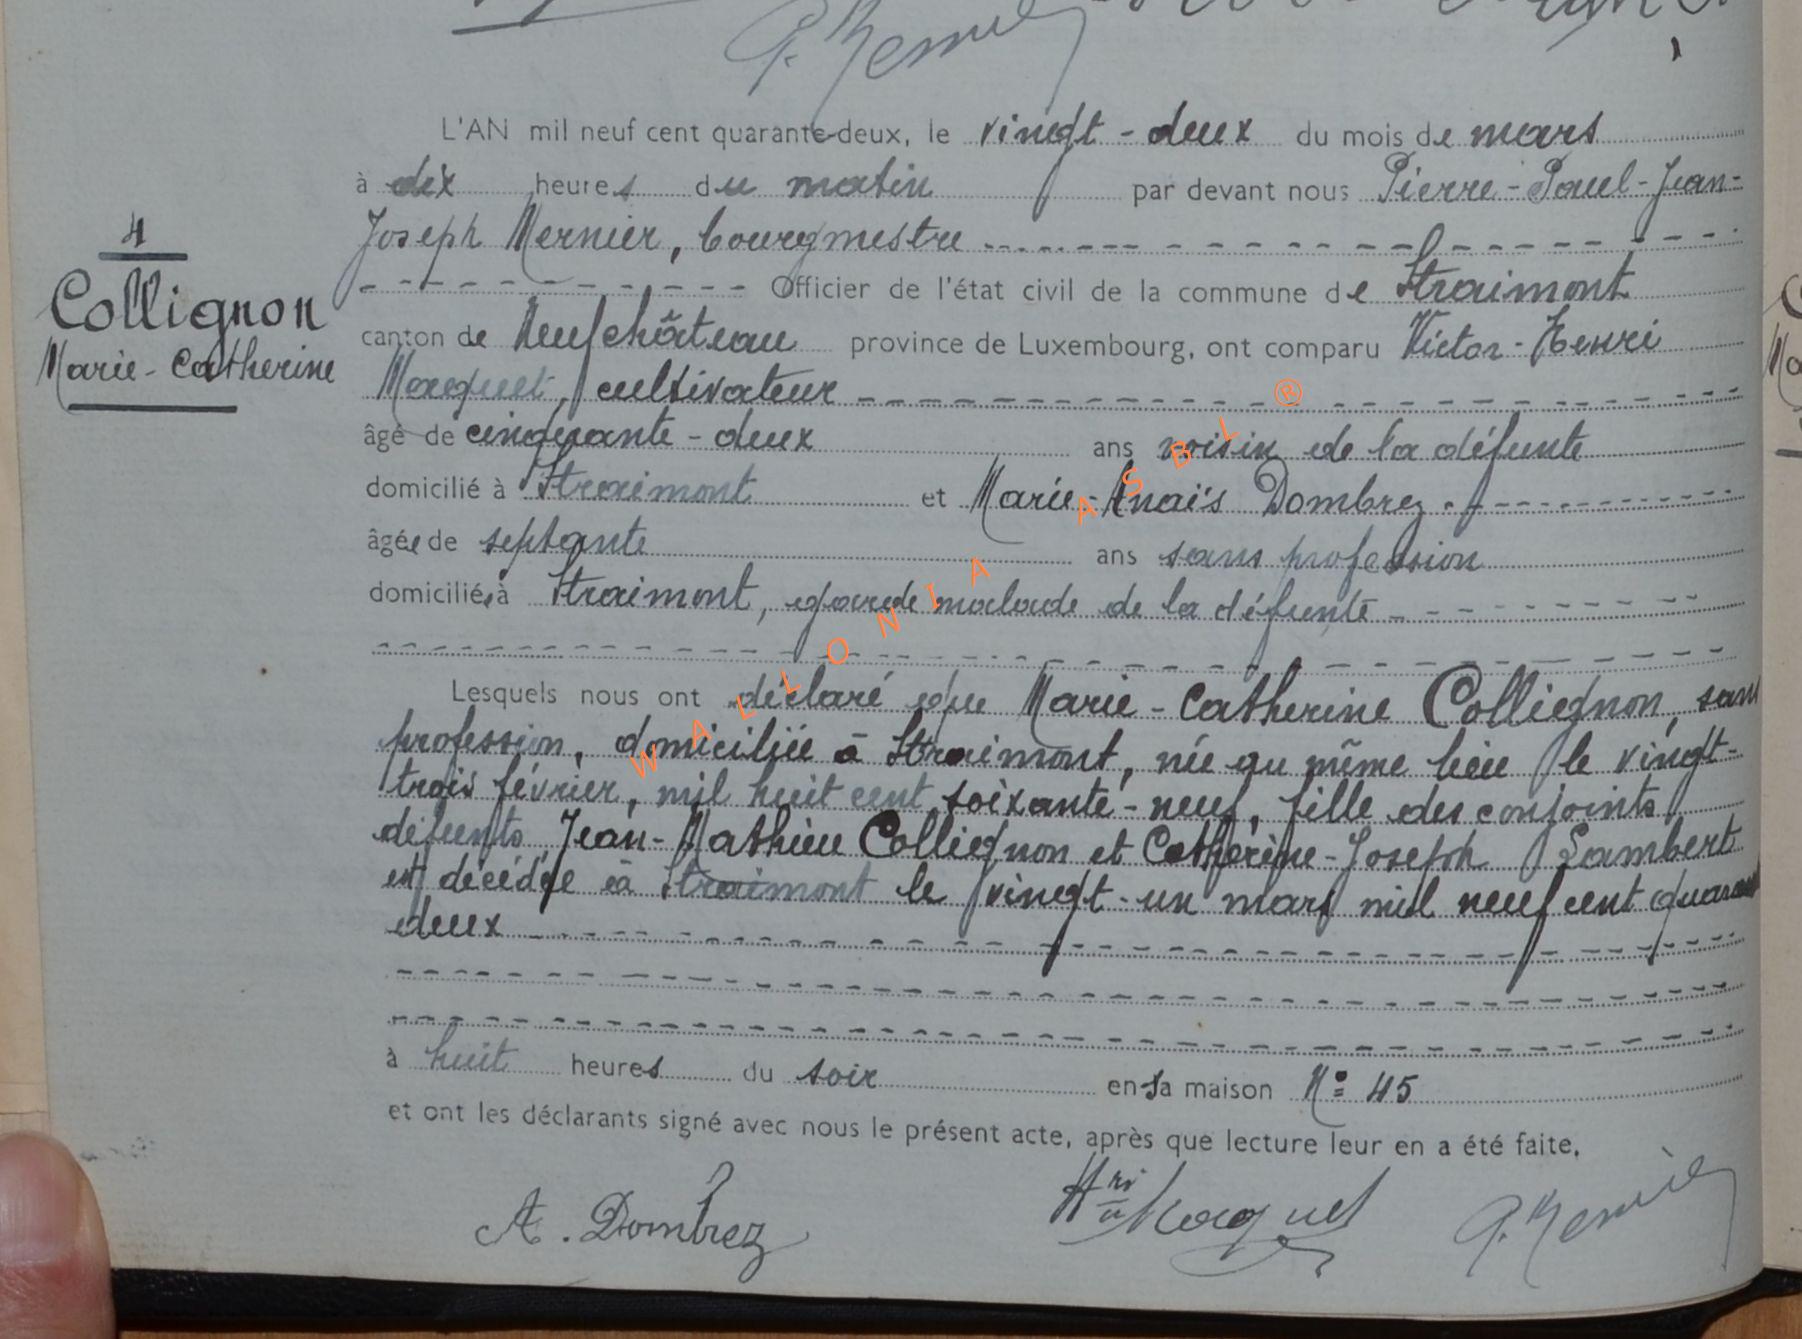 L'AN mil neuf cent quarante-deux, le vingt-deux du mois de mars
à dix heures du matin par devant nous Pierre-Paul-Jean-
Joseph Mernier, bourgmestre
4
Collignon
Marie-Catherine
Officier de l'état civil de la commune de Straimont
canton de Neufchâteau province de Luxembourg, ont comparu Victor-Henri
Maquet, cultivateur
âgé de cinquante-deux ans voisin de la défunte
domicilié à Straimont et Marie-Anaïs Dombrez
âgée de septante ans sans profession
domiciliée à Straimont, garde malade de la défunte
Lesquels nous ont déclaré que Marie-Catherine Collignon, sans
profession, domiciliée à Straimont, née au même lieu le vingt-
trois février, mil huit cent soixante-neuf, fille des conjoints
défunts Jean-Mathieu Collignon et Catherine-Joseph Lambert
est décédée à Straimont le vingt-un mars mil neuf cent quarante
deux
à huit heures du soir en sa maison N° 45
et ont les déclarants signé avec nous le présent acte, après que lecture leur en a été faite.
A. Dombrez
Hri Maquet
P. Mernier
WALLONIA ASBL ®